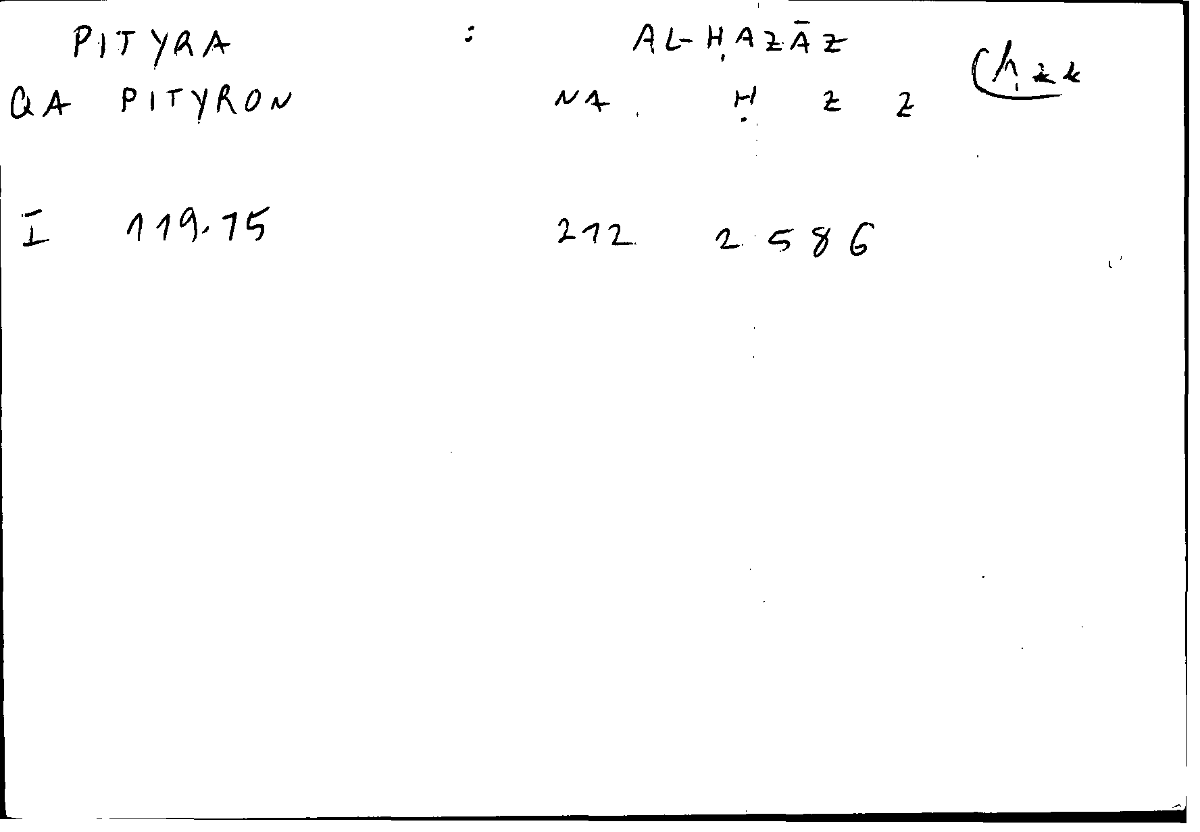 PITYRA : AL-ḤAZĀZ
QA PITYRON NA Ḥ Z Z
I 119.15 212 2586